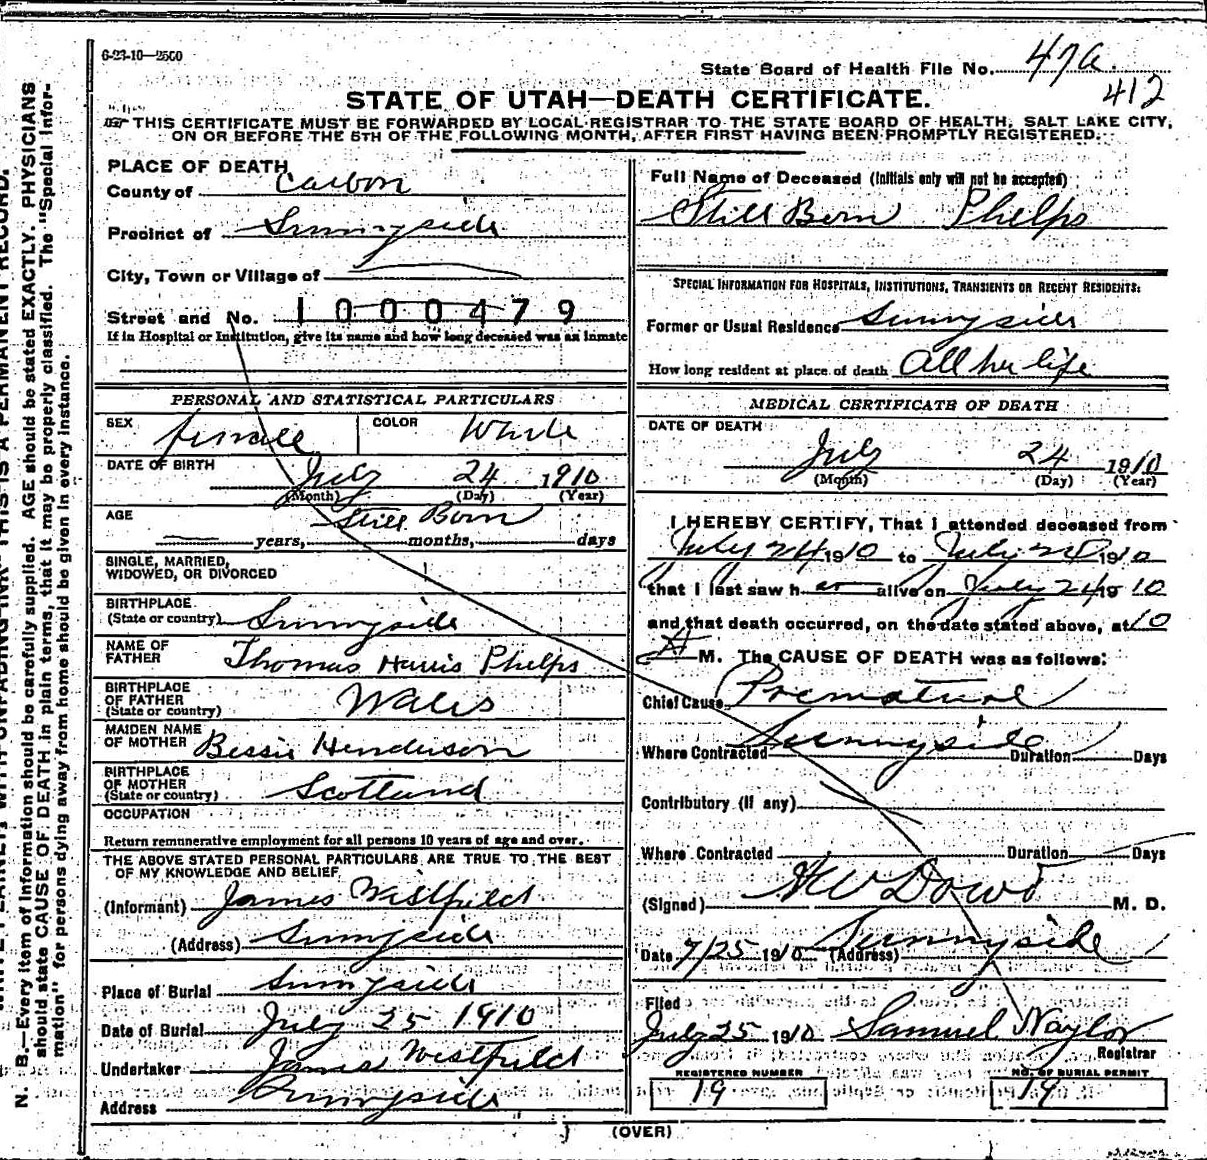 6-23-10—2500
State Board of Health File No. 47a.
412
STATE OF UTAH—DEATH CERTIFICATE.
THIS CERTIFICATE MUST BE FORWARDED BY LOCAL REGISTRAR TO THE STATE BOARD OF HEALTH, SALT LAKE CITY,
ON OR BEFORE THE 5TH OF THE FOLLOWING MONTH, AFTER FIRST HAVING BEEN PROMPTLY REGISTERED.
PLACE OF DEATH
County of Carbon
Precinct of Sunnyside
City, Town or Village of
Street and No. 1000479
If in Hospital or Institution, give its name and how long deceased was an inmate
PERSONAL AND STATISTICAL PARTICULARS
SEX female COLOR White
DATE OF BIRTH July 24 1910
(Month) (Day) (Year)
AGE Still Born
years, months, days
SINGLE, MARRIED,
WIDOWED, OR DIVORCED
BIRTHPLACE
(State or country) Sunnyside
NAME OF
FATHER Thomas Harris Phelps
BIRTHPLACE
OF FATHER
(State or country) Wales
MAIDEN NAME
OF MOTHER Bessie Henderson
BIRTHPLACE
OF MOTHER
(State or country) Scotland
OCCUPATION
Return remunerative employment for all persons 10 years of age and over.
THE ABOVE STATED PERSONAL PARTICULARS ARE TRUE TO THE BEST
OF MY KNOWLEDGE AND BELIEF
(Informant) James Westfield
(Address) Sunnyside
Place of Burial Sunnyside
Date of Burial July 25 1910
Undertaker James Westfield
Address Sunnyside
Full Name of Deceased (Initials only will not be accepted)
Still Born Phelps
SPECIAL INFORMATION FOR HOSPITALS, INSTITUTIONS, TRANSIENTS OR RECENT RESIDENTS:
Former or Usual Residence Sunnyside
How long resident at place of death All her life
MEDICAL CERTIFICATE OF DEATH
DATE OF DEATH
July 24 1910
(Month) (Day) (Year)
I HEREBY CERTIFY, That I attended deceased from
July 24 1910 to July 24 1910
that I last saw h er alive on July 24 19 10
and that death occurred, on the date stated above, at 10
A M. The CAUSE OF DEATH was as follows:
Chief Cause Premature
Where Contracted Sunnyside Duration Days
Contributory (If any)
Where Contracted Duration Days
(Signed) Dowd M. D.
Date 7/25 1910 (Address) Sunnyside
Filed
July 25 1910 Samuel Naylor
Registrar
REGISTERED NUMBER
19
NO. OF BURIAL PERMIT
19
(OVER)
N. B.—Every item of information should be carefully supplied. AGE should be stated EXACTLY. PHYSICIANS
should state CAUSE OF DEATH in plain terms, that it may be properly classified. The "Special Infor-
mation" for persons dying away from home should be given in every instance.